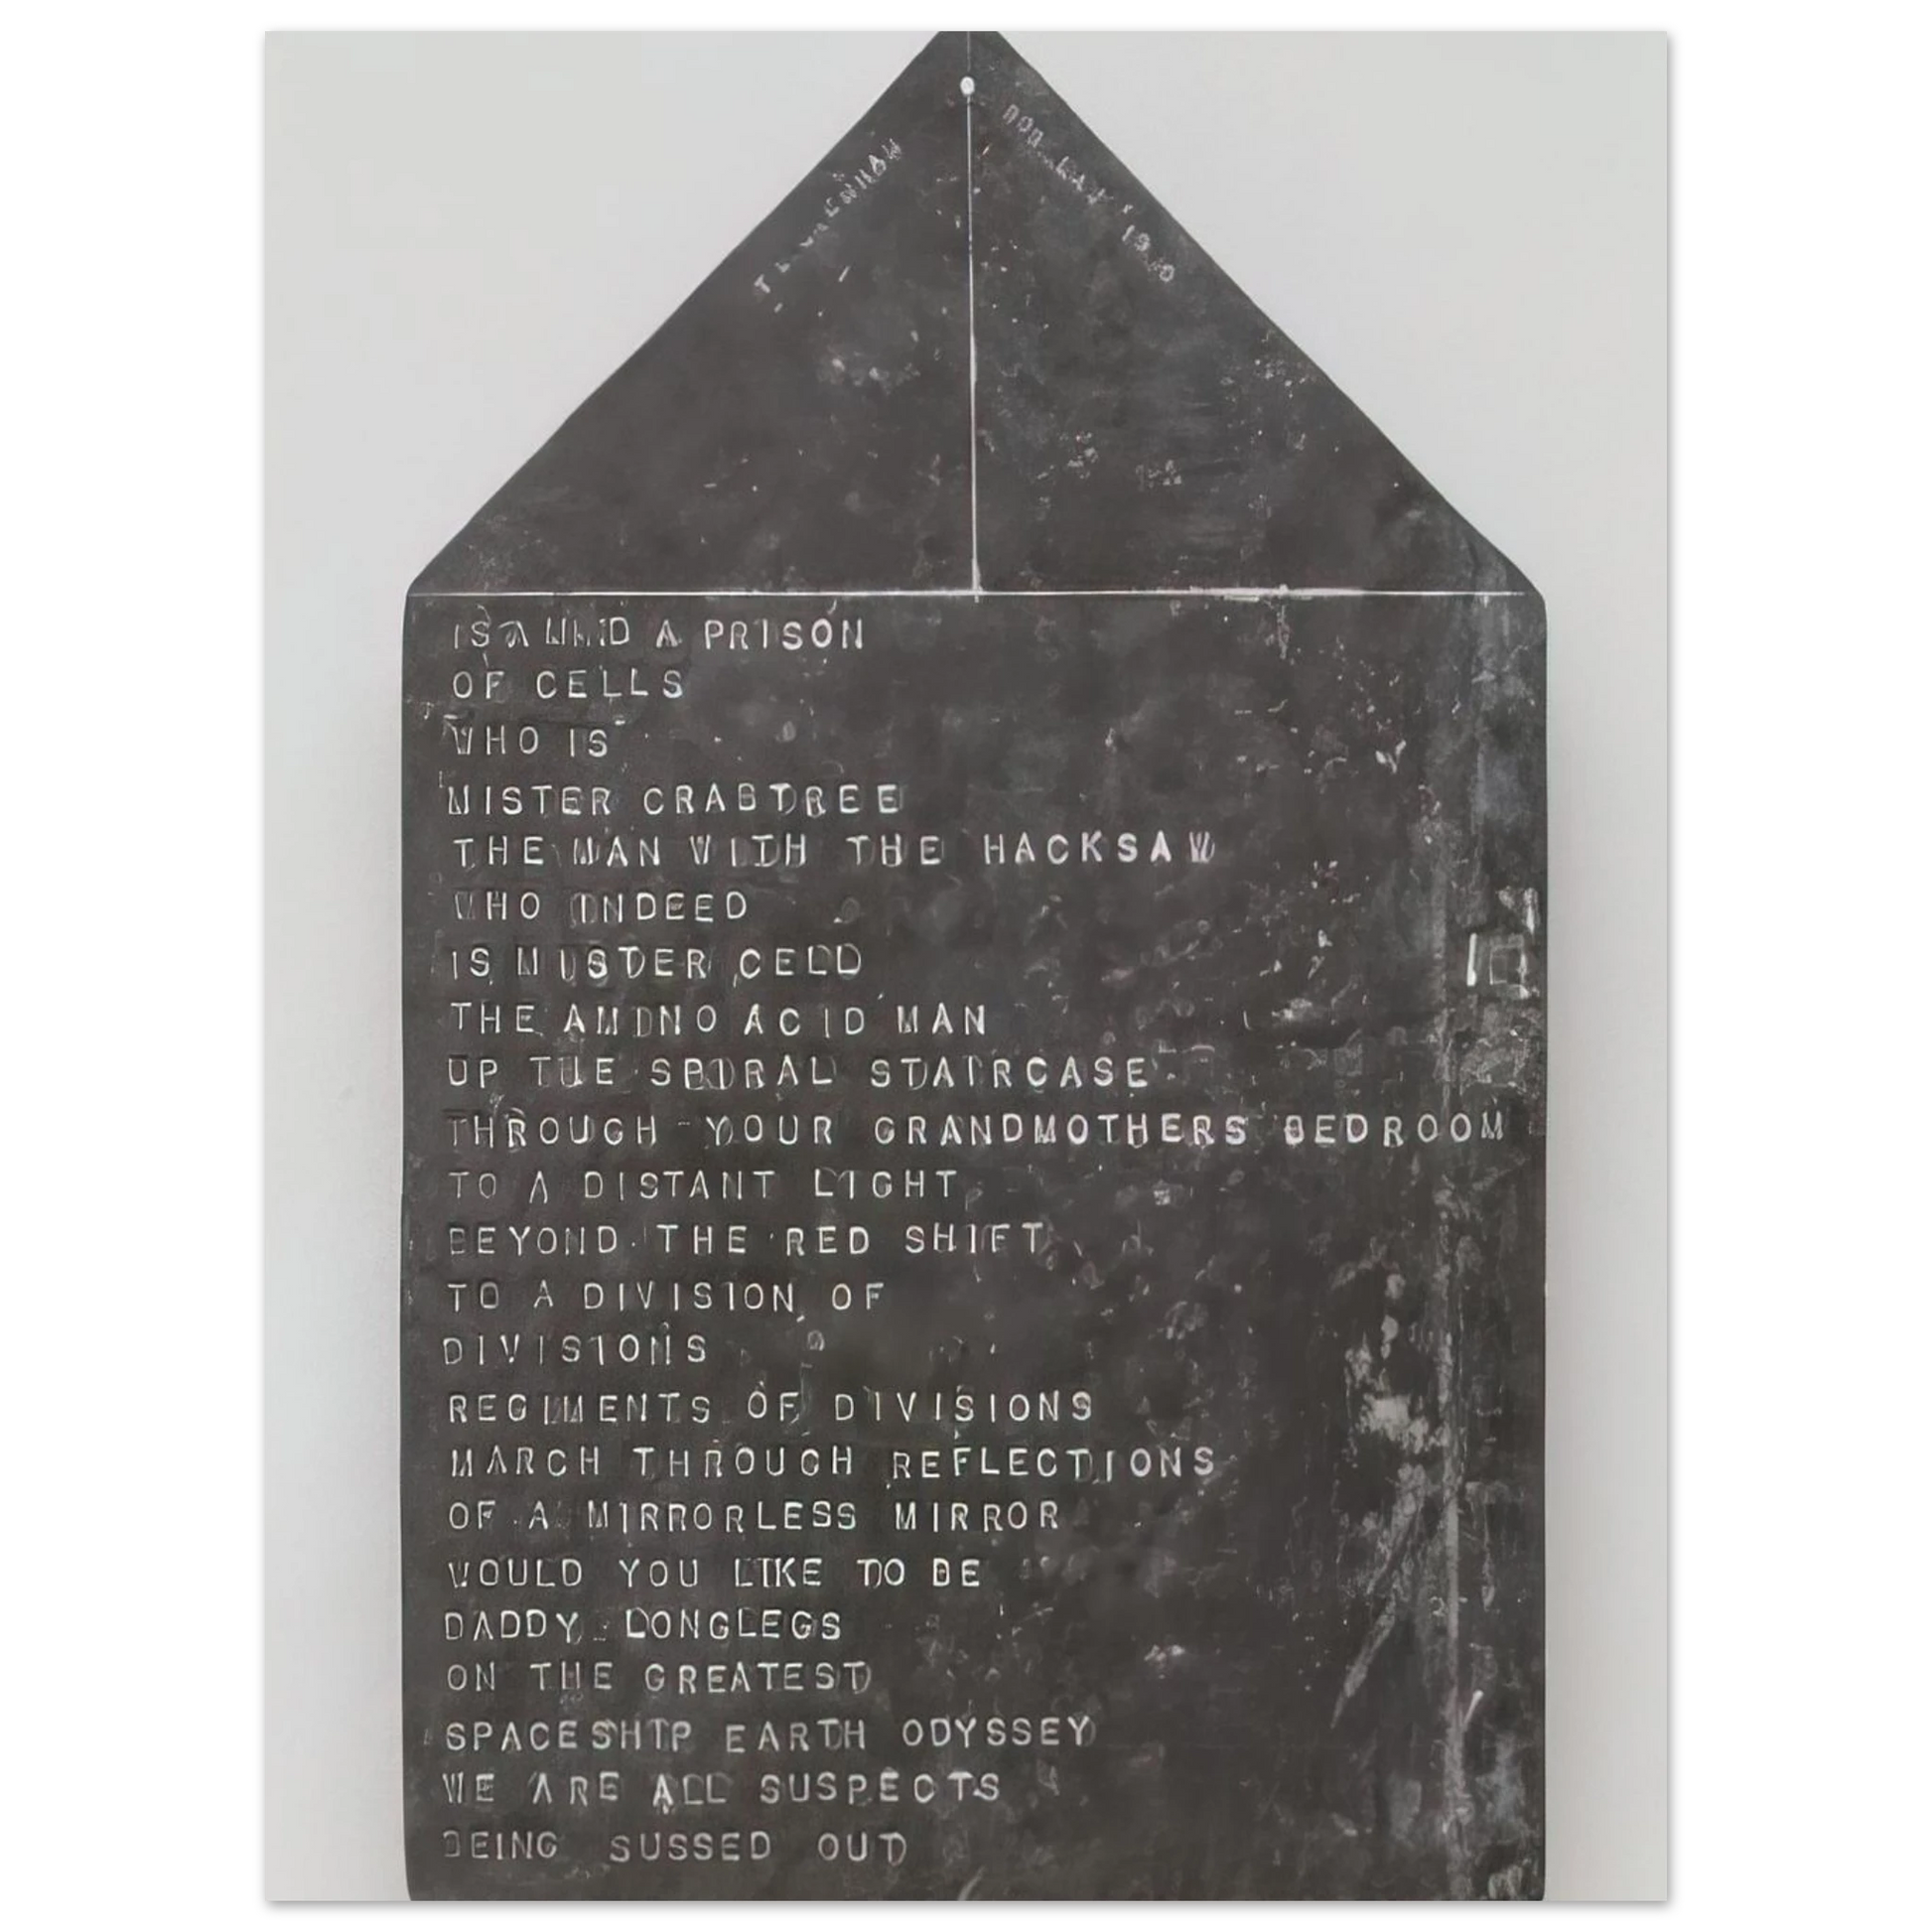 IS A MIND A PRISON
OF CELLS
WHO IS
MISTER CRABTREE
THE MAN WITH THE HACKSAW
WHO INDEED
IS MISTER CELL
THE AMINO ACID MAN
UP THE SPIRAL STAIRCASE
THROUGH YOUR GRANDMOTHERS BEDROOM
TO A DISTANT LIGHT
BEYOND THE RED SHIFT
TO A DIVISION OF
DIVISIONS
REGIMENTS OF DIVISIONS
MARCH THROUGH REFLECTIONS
OF A MIRRORLESS MIRROR
WOULD YOU LIKE TO BE
DADDY LONGLEGS
ON THE GREATEST
SPACESHIP EARTH ODYSSEY
WE ARE ALL SUSPECTS
BEING SUSSED OUT